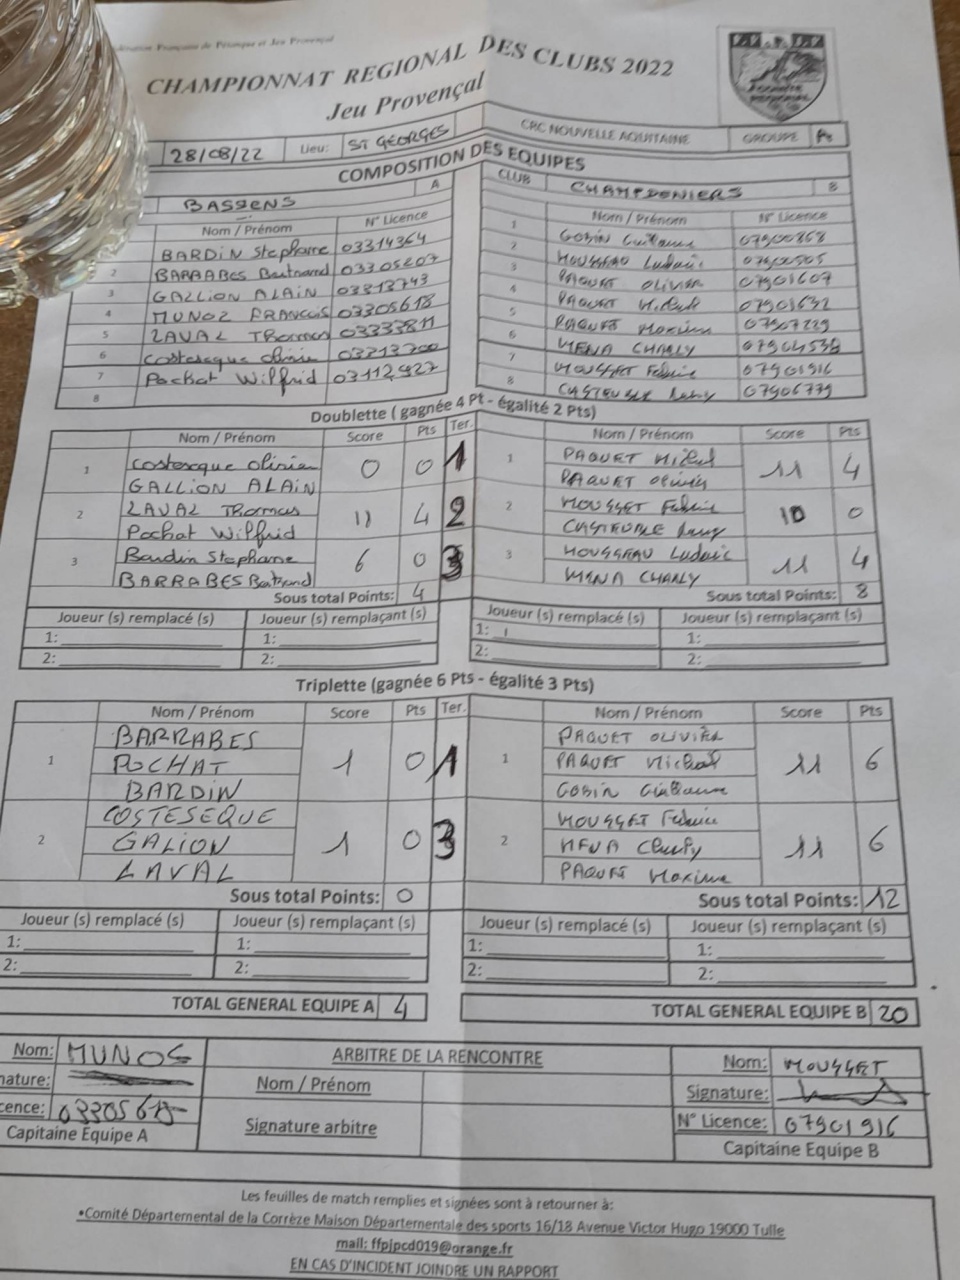 Fédération Française de Pétanque et Jeu Provençal
CHAMPIONNAT REGIONAL DES CLUBS 2022
Jeu Provençal
28/08/22 Lieu: ST GEORGES CRC NOUVELLE AQUITAINE GROUPE
COMPOSITION DES EQUIPES
BASSENS A CLUB CHAMPDENIERS B
Nom / Prénom N° Licence Nom / Prénom N° Licence
BARDIN Stephane 03314364 1 GOBIN Guillaume 07900868
2 BARRABES Bertrand 03305207 2 MOUSSEAU Ludovic 07900505
3 GALLION ALAIN 03313743 3 PAQUET OLIVIER 07901607
4 MUNOZ FRANCOIS 03305618 4 PAQUET Michel 07901632
5 LAVAL Thomas 03333811 5 PAQUET Maxime 07907229
6 Costesèque Olivier 03313200 6 MENA CHARLY 07904538
7 Pochat Wilfrid 03112927 7 MOUSSET Fabrice 07901916
8 8 CASTEUBLE Remy 07906779
Doublette ( gagnée 4 Pt - égalité 2 Pts)
Nom / Prénom Score Pts Ter. Nom / Prénom Score Pts
1 Costesèque Olivier 0 0 1 1 PAQUET Michel 11 4
GALLION ALAIN PAQUET Olivier
2 LAVAL Thomas 11 4 2 2 MOUSSET Fabrice 10 0
Pochat Wilfrid CASTEUBLE Remy
3 Bardin Stephane 6 0 3 3 MOUSSEAU Ludovic 11 4
BARRABES Bertrand MENA CHARLY
Sous total Points: 4 Sous total Points: 8
Joueur (s) remplacé (s) Joueur (s) remplaçant (s) Joueur (s) remplacé (s) Joueur (s) remplaçant (s)
1: 1: 1: 1:
2: 2: 2: 2:
Triplette (gagnée 6 Pts - égalité 3 Pts)
Nom / Prénom Score Pts Ter. Nom / Prénom Score Pts
1 BARRABES 1 0 1 1 PAQUET OLIVIER 11 6
POCHAT PAQUET Michel
BARDIN GOBIN Guillaume
2 COSTESEQUE 1 0 3 2 MOUSSET Fabrice 11 6
GALION MENA Charly
LAVAL PAQUET Maxime
Sous total Points: 0 Sous total Points: 12
Joueur (s) remplacé (s) Joueur (s) remplaçant (s) Joueur (s) remplacé (s) Joueur (s) remplaçant (s)
1: 1: 1: 1:
2: 2: 2: 2:
TOTAL GENERAL EQUIPE A 4 TOTAL GENERAL EQUIPE B 20
Nom: MUNOS ARBITRE DE LA RENCONTRE Nom: MOUSSET
nature: Nom / Prénom Signature:
cence: 03305618 Signature arbitre N° Licence: 07901916
Capitaine Equipe A Capitaine Equipe B
Les feuilles de match remplies et signées sont à retourner à:
•Comité Départemental de la Corrèze Maison Départementale des sports 16/18 Avenue Victor Hugo 19000 Tulle
mail: ffpjpcd019@orange.fr
EN CAS D'INCIDENT JOINDRE UN RAPPORT